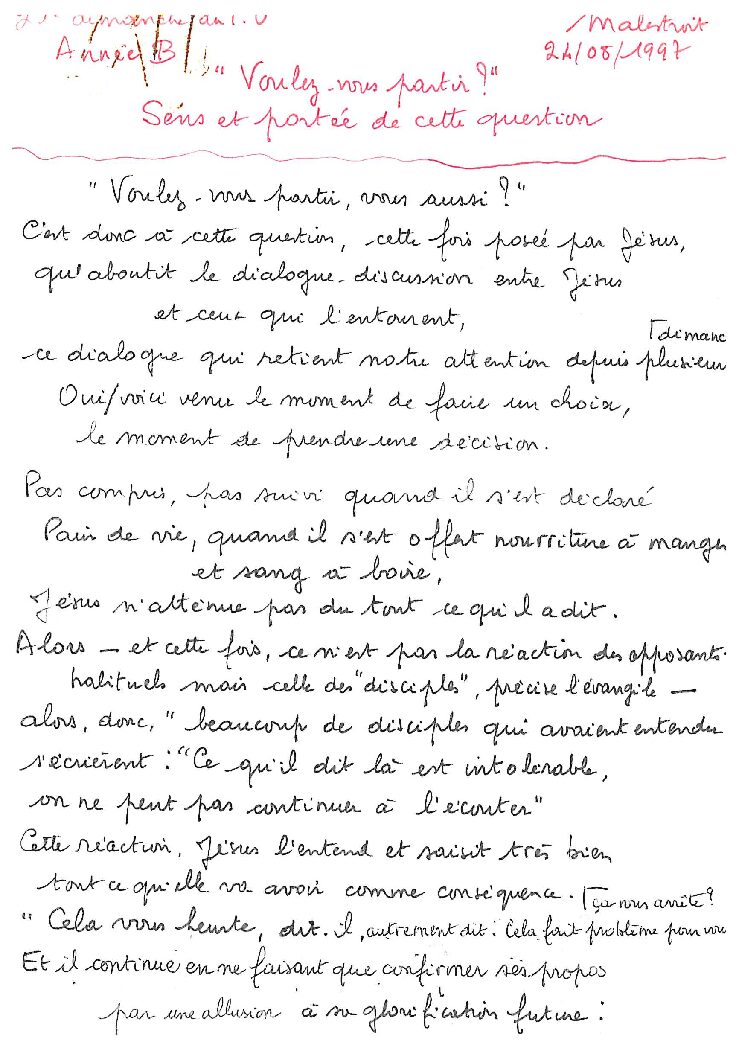 21e dimanche du T.O
Année B
Malestroit
24/08/1997
"Voulez-vous partir?"
Sens et portée de cette question
"Voulez-vous partir, vous aussi?"
C'est donc à cette question, cette fois posée par Jésus,
qu'aboutit le dialogue-discussion entre Jésus
et ceux qui l'entourent,
dimanc
ce dialogue qui retient notre attention depuis plusieur
Oui/voici venu le moment de faire un choix,
le moment de prendre une décision.
Pas compris, pas suivi quand il s'est déclaré
Pain de vie, quand il s'est offert nourriture à manger
et sang à boire,
Jésus n'atténue pas du tout ce qu'il a dit.
Alors — et cette fois, ce n'est pas la réaction des opposants
habituels mais celle des "disciples", précise l'évangile —
alors, donc, "beaucoup de disciples qui avaient entendu
s'écrièrent : "Ce qu'il dit là est intolérable,
on ne peut pas continuer à l'écouter"
Cette réaction, Jésus l'entend et saisit très bien
tout ce qu'elle va avoir comme conséquence.
ça vous arrête?
"Cela vous heurte, dit-il, autrement dit: Cela fait problème pour vou
Et il continue en ne faisant que confirmer ses propos
par une allusion à sa glorification future :